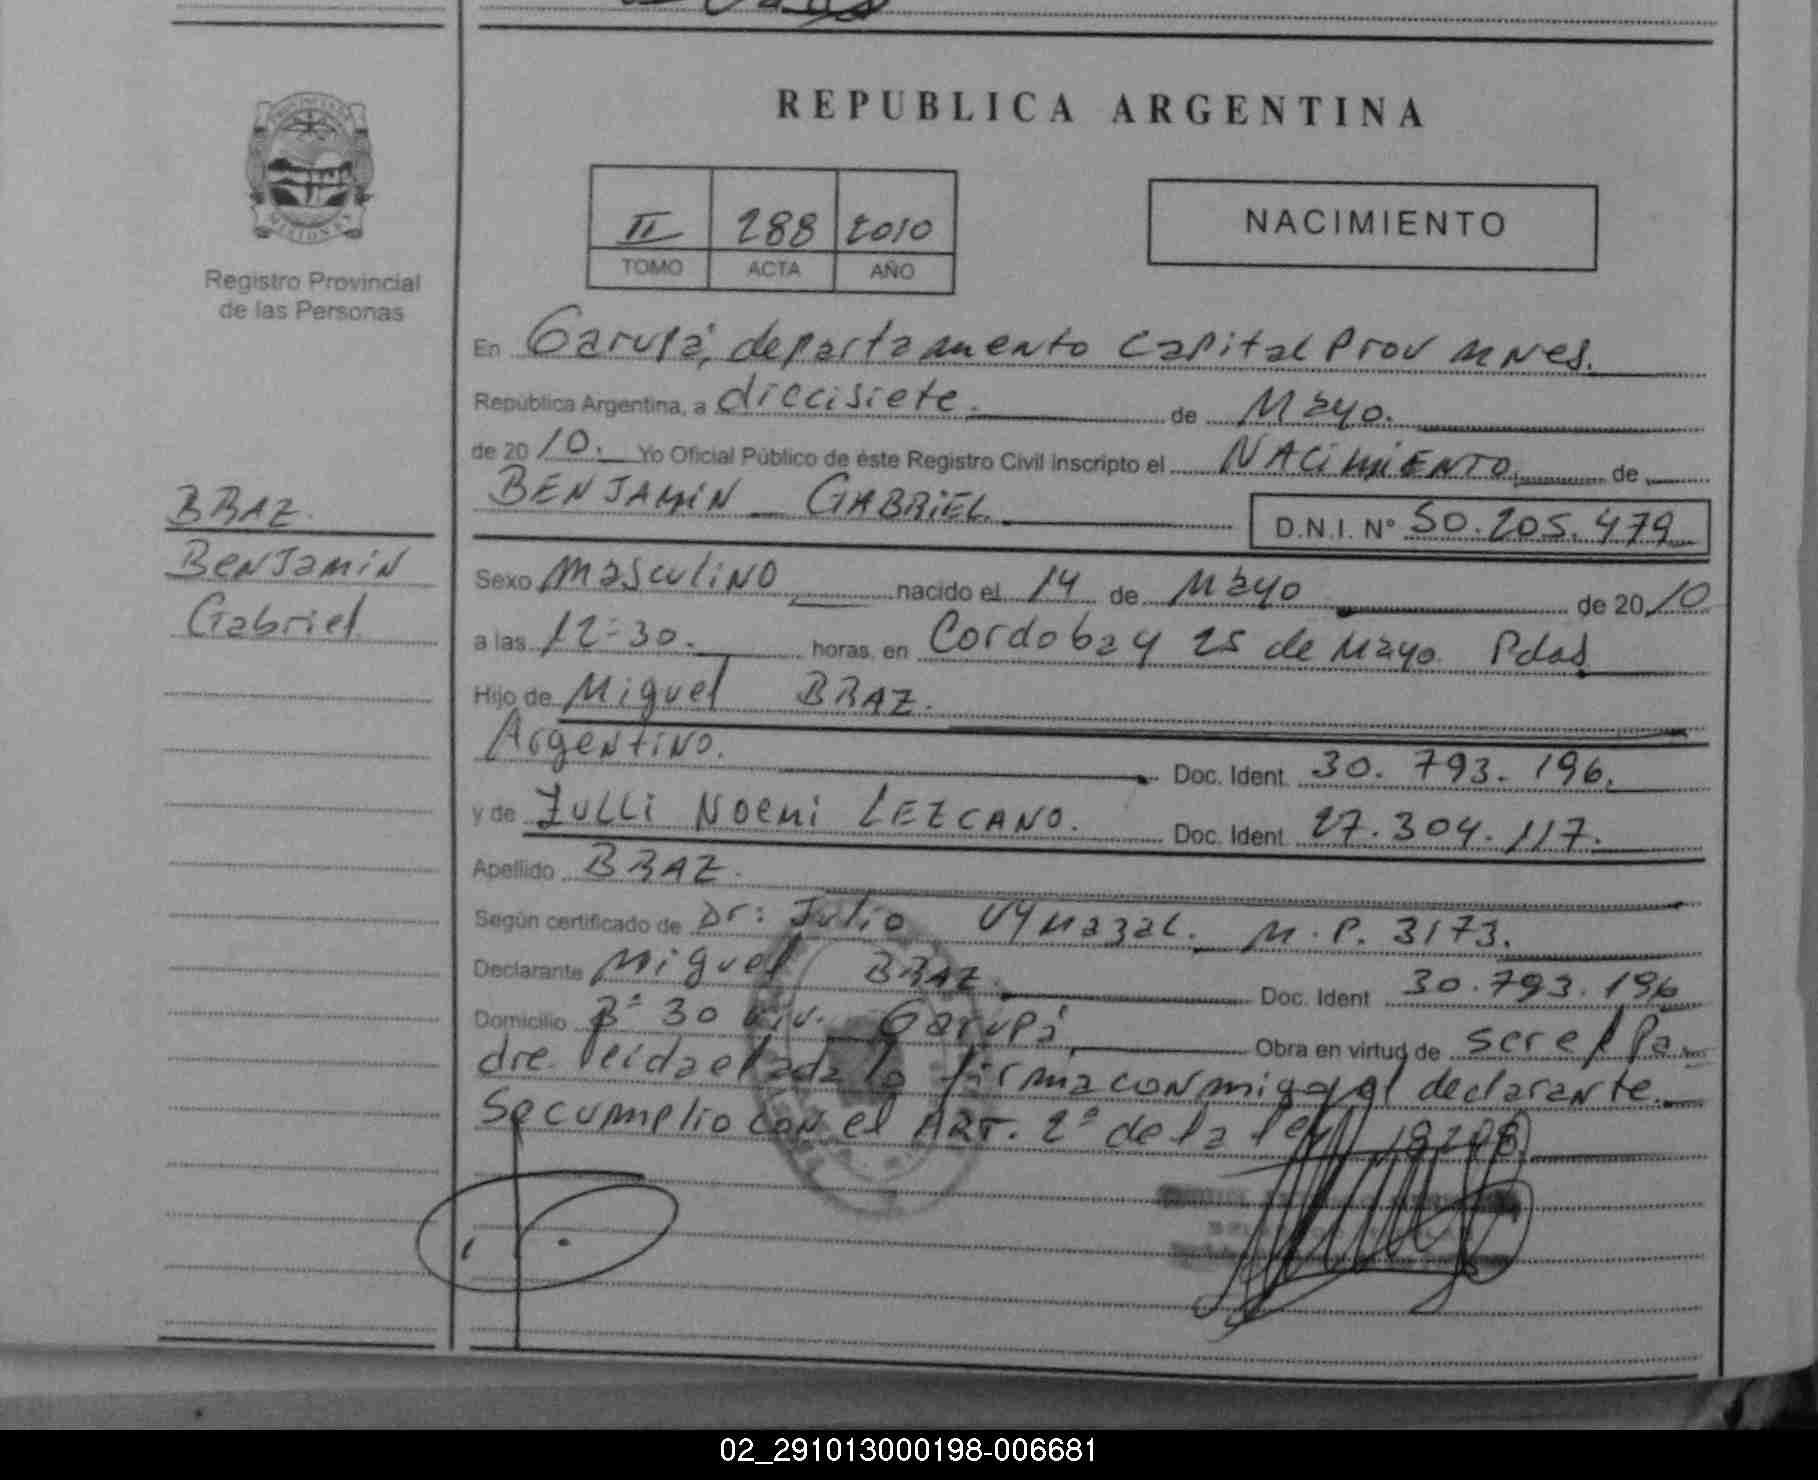 REPUBLICA ARGENTINA
MISIONES
Registro Provincial
de las Personas
II 288 2010
TOMO ACTA AÑO
NACIMIENTO
En Garupá, departamento Capital Prov Mnes.
República Argentina, a diecisiete. de Mayo.
de 20 10. Yo Oficial Público de éste Registro Civil Inscripto el NACIMIENTO. de
BENJAMIN GABRIEL D.N.I. Nº 50.205.479
BRAZ.
Benjamin
Gabriel
Sexo masculino nacido el 14 de Mayo de 20 10
a las 12:30. horas, en Cordoba y 25 de Mayo. Pdas
Hijo de Miguel BRAZ.
Argentino. Doc. Ident. 30.793.196.
y de ZULLI NOEMI LEZCANO. Doc. Ident. 27.304.117.
Apellido BRAZ.
Según certificado de Dr: Julio Vymazal. M.P. 3173.
Declarante Miguel BRAZ. Doc. Ident 30.793.196
Domicilio Bº 30 viv. Garupá Obra en virtud de ser el Pa
dre leida el acta la firma conmigo el declarante.
Se cumplio con el ART. 2º de la ley 18208
02_291013000198-006681